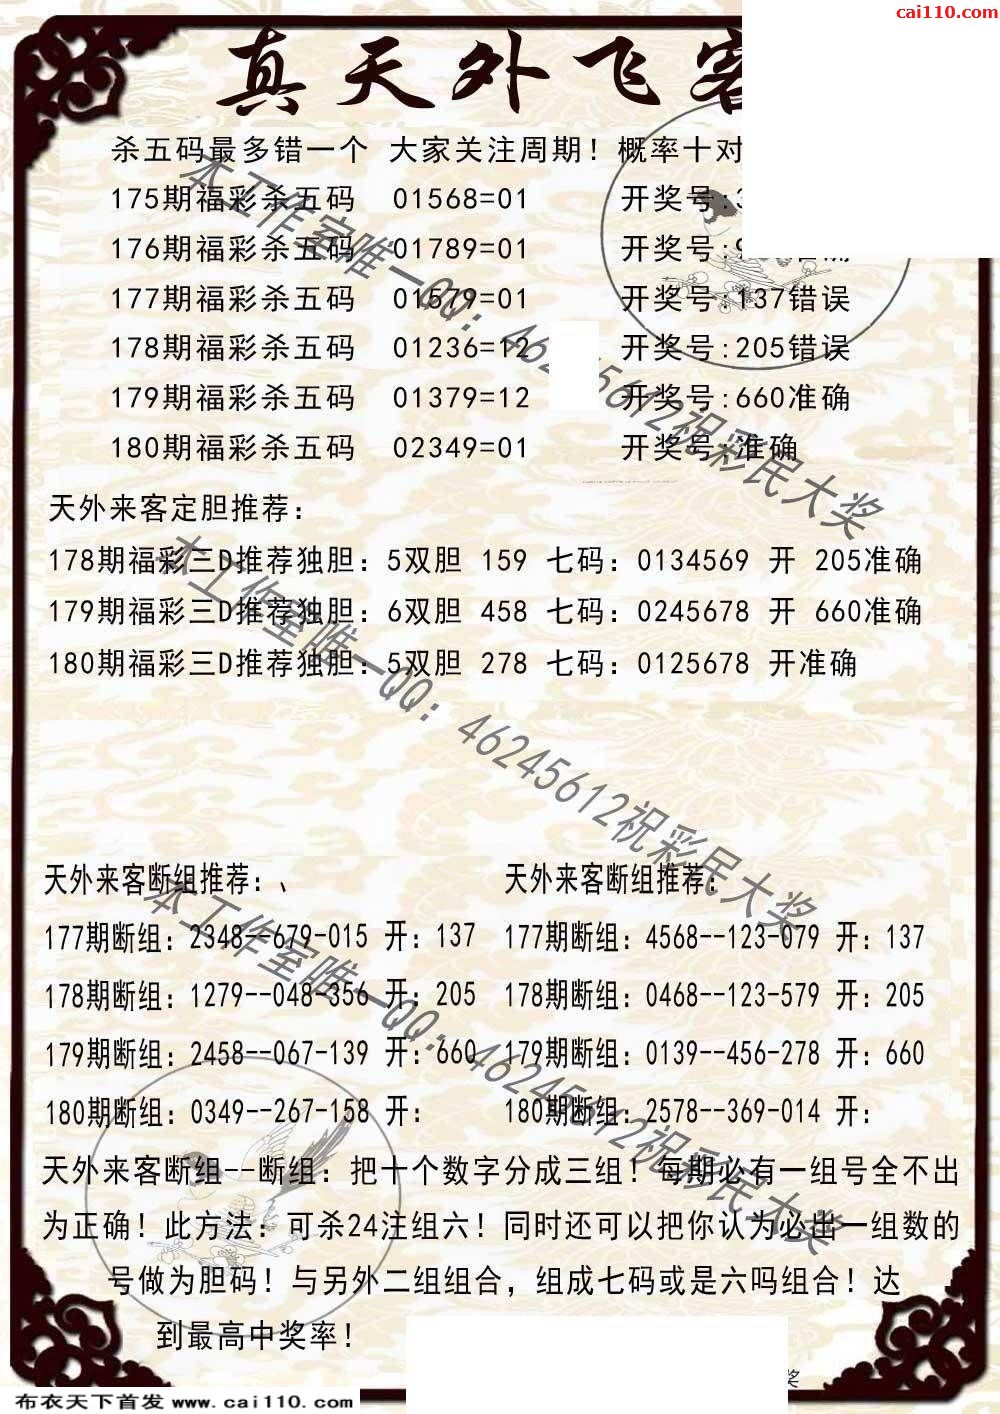 cai110.com
真天外飞客
杀五码最多错一个 大家关注周期！概率十对
175期福彩杀五码 01568=01 开奖号:3
176期福彩杀五码 01789=01 开奖号:9
177期福彩杀五码 01579=01 开奖号:137错误
178期福彩杀五码 01236=12 开奖号:205错误
179期福彩杀五码 01379=12 开奖号:660准确
180期福彩杀五码 02349=01 开奖号:准确
天外来客定胆推荐：
178期福彩三D推荐独胆：5双胆 159 七码：0134569 开 205准确
179期福彩三D推荐独胆：6双胆 458 七码：0245678 开 660准确
180期福彩三D推荐独胆：5双胆 278 七码：0125678 开准确
天外来客断组推荐：、
177期断组：2348--679-015 开：137
178期断组：1279--048-356 开：205
179期断组：2458--067-139 开：660
180期断组：0349--267-158 开：
天外来客断组推荐：
177期断组：4568--123-079 开：137
178期断组：0468--123-579 开：205
179期断组：0139--456-278 开：660
180期断组：2578--369-014 开：
天外来客断组--断组：把十个数字分成三组！每期必有一组号全不出
为正确！此方法：可杀24注组六！同时还可以把你认为必出一组数的
号做为胆码！与另外二组组合，组成七码或是六吗组合！达
到最高中奖率！
本工作室唯一QQ：46245612祝彩民大奖
本工作室唯一QQ：46245612祝彩民大奖
本工作室唯一QQ：46245612祝彩民大奖
奖
布衣天下首发 www.cai110.com